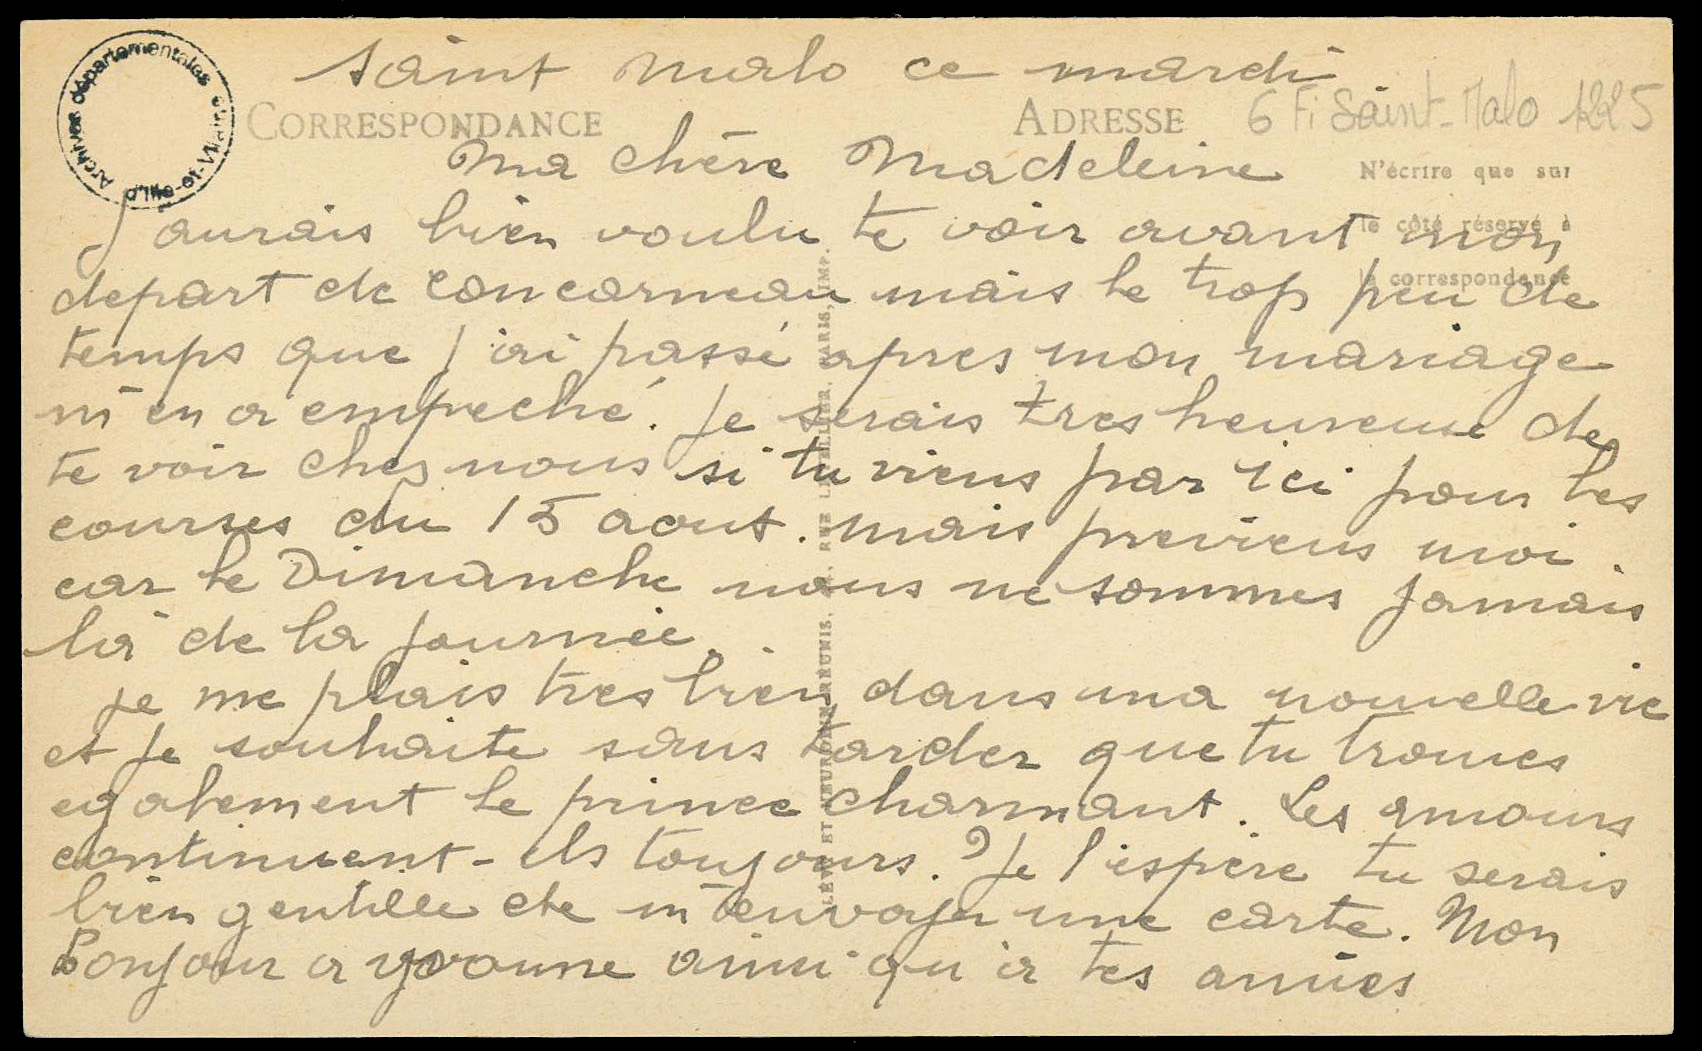 Saint Malo ce mardi
Archives départementales d'Ille-et-Vilaine
CORRESPONDANCE
ADRESSE
6 Fi Saint-Malo 1225
Ma chère Madeleine
N'écrire que sur
le côté réservé à
la correspondance
J aurais bien voulu te voir avant mon
depart de Concarneau mais le trop peu de
temps que j'ai passé apres mon mariage
m'en a empeché. Je serais tres heureuse de
te voir chez nous si tu viens par ici pour les
courses du 15 aout. Mais previens moi.
car le Dimanche nous ne sommes jamais
là de la journée.
je me plais tres bien dans ma nouvelle vie
et je souhaite sans tarder que tu trouves
egalement le prince charmant. Les amours
continuent-ils toujours.? Je l'espère tu serais
bien gentille de m'envoyer une carte. Mon
Bonjour a Yvonne ainsi qu'a tes amies
LÉVY ET NEURDEIN RÉUNIS, RUE LETELLIER, PARIS, IMP.